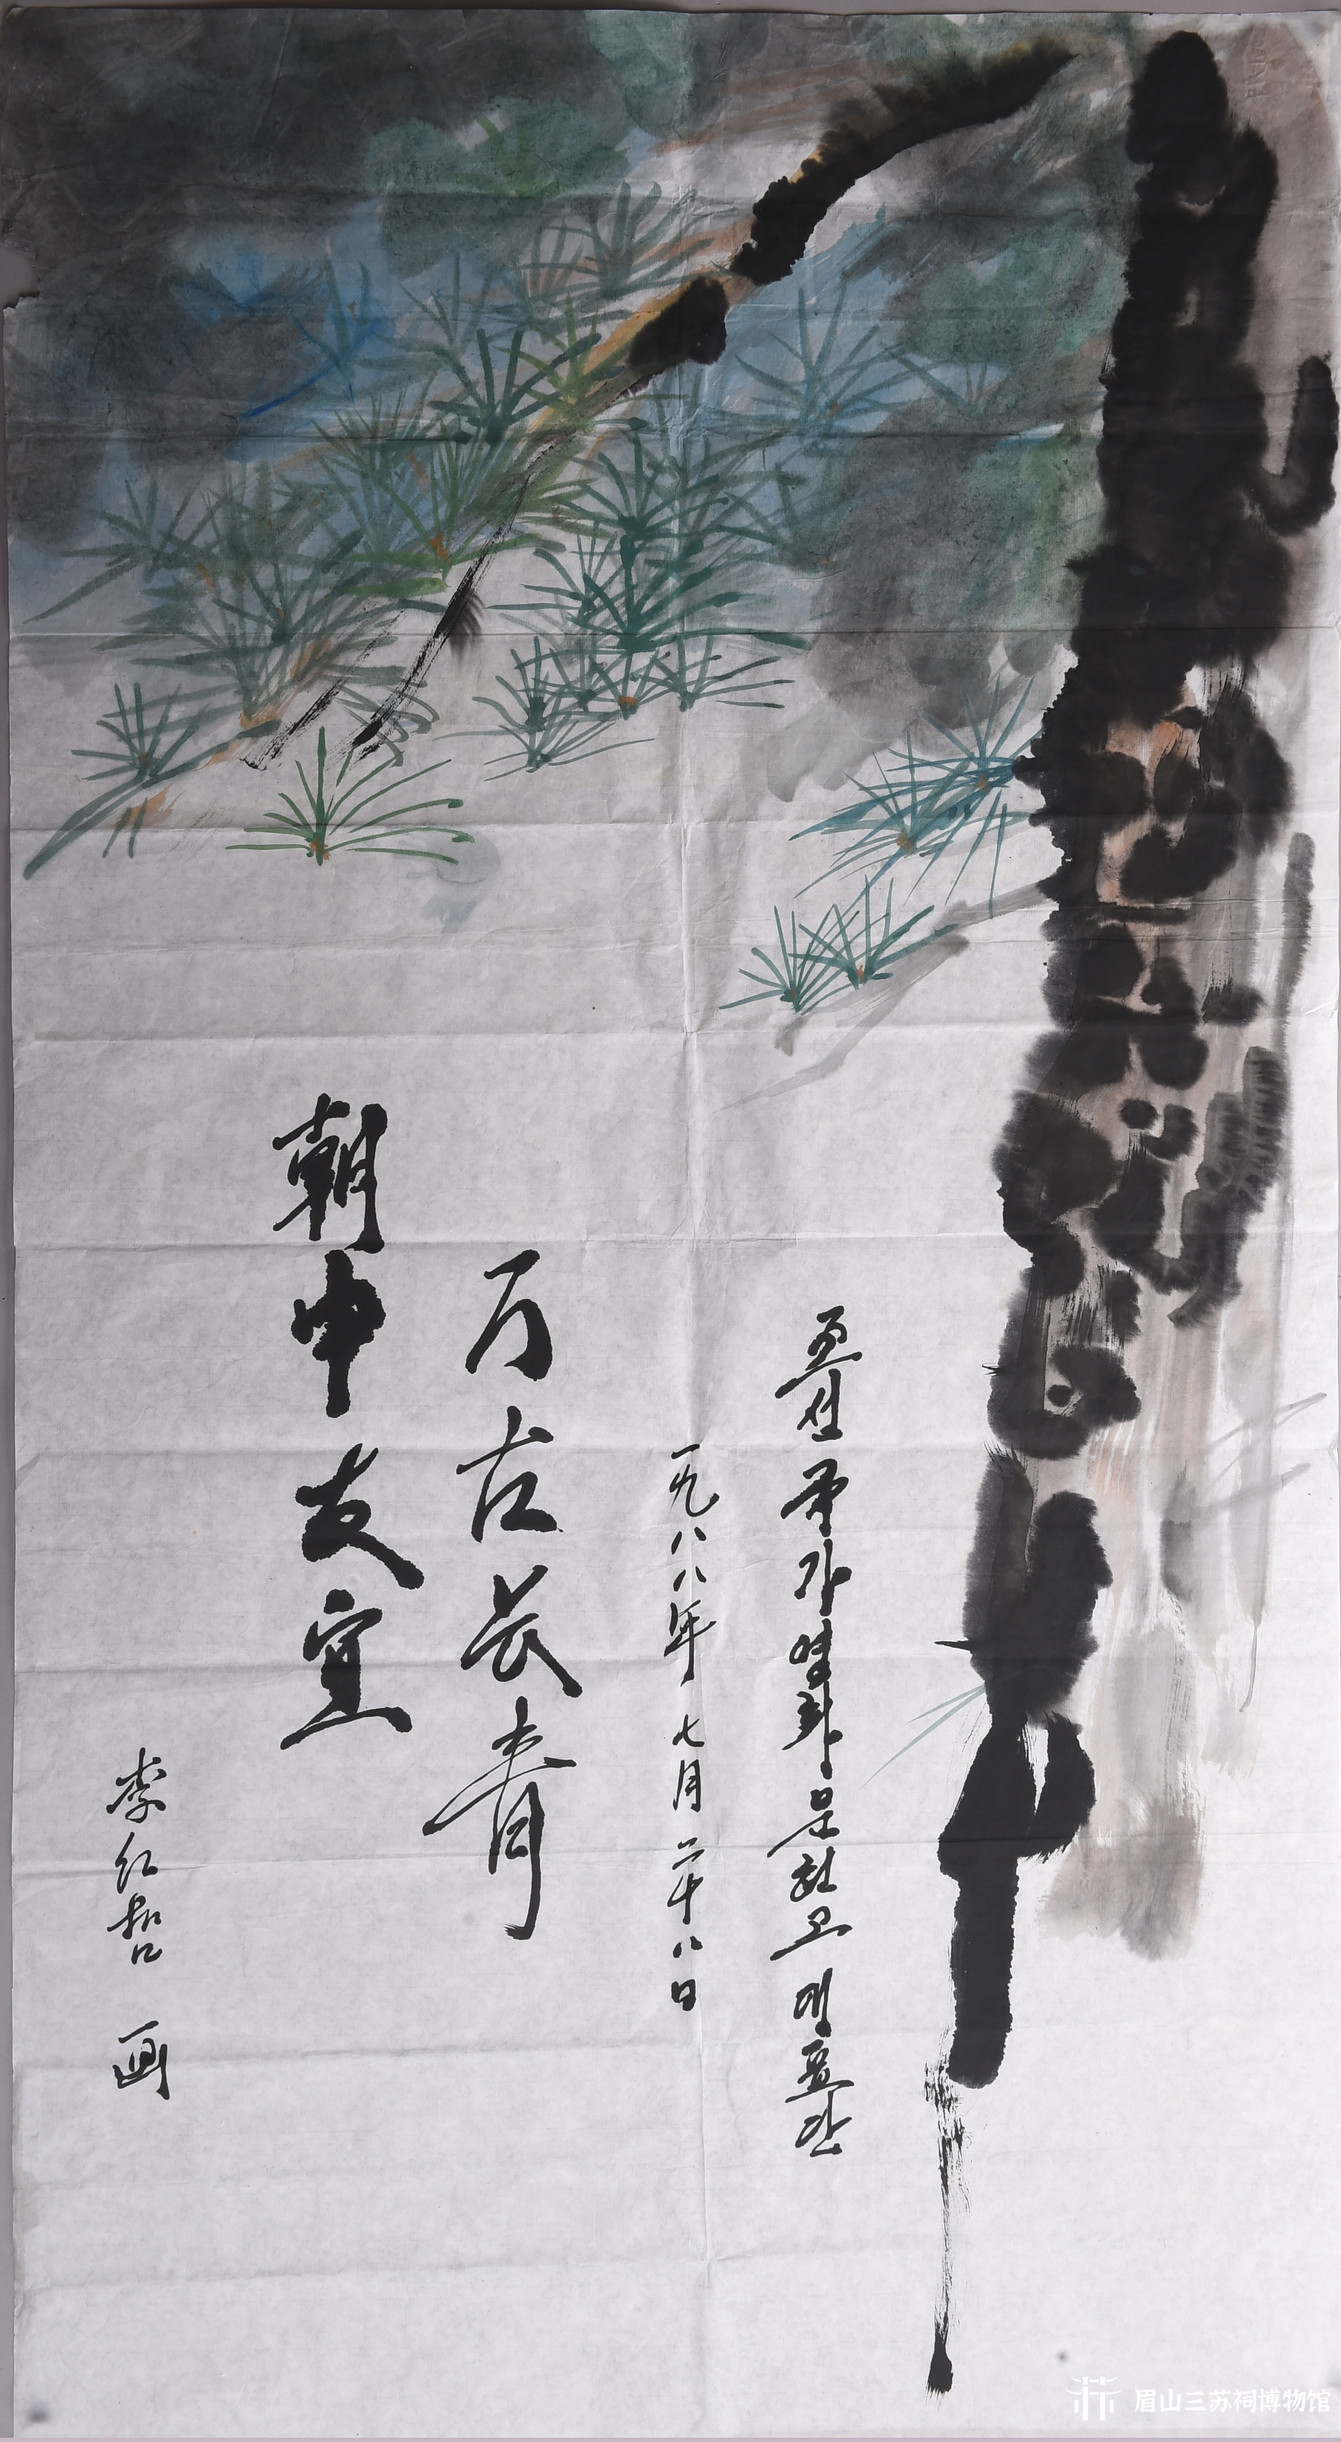 朝中友宜
万古长青
一九八八年 七月 二十八日
조선 국가영화문헌고 대표단
李红哲 画
眉山三苏祠博物馆